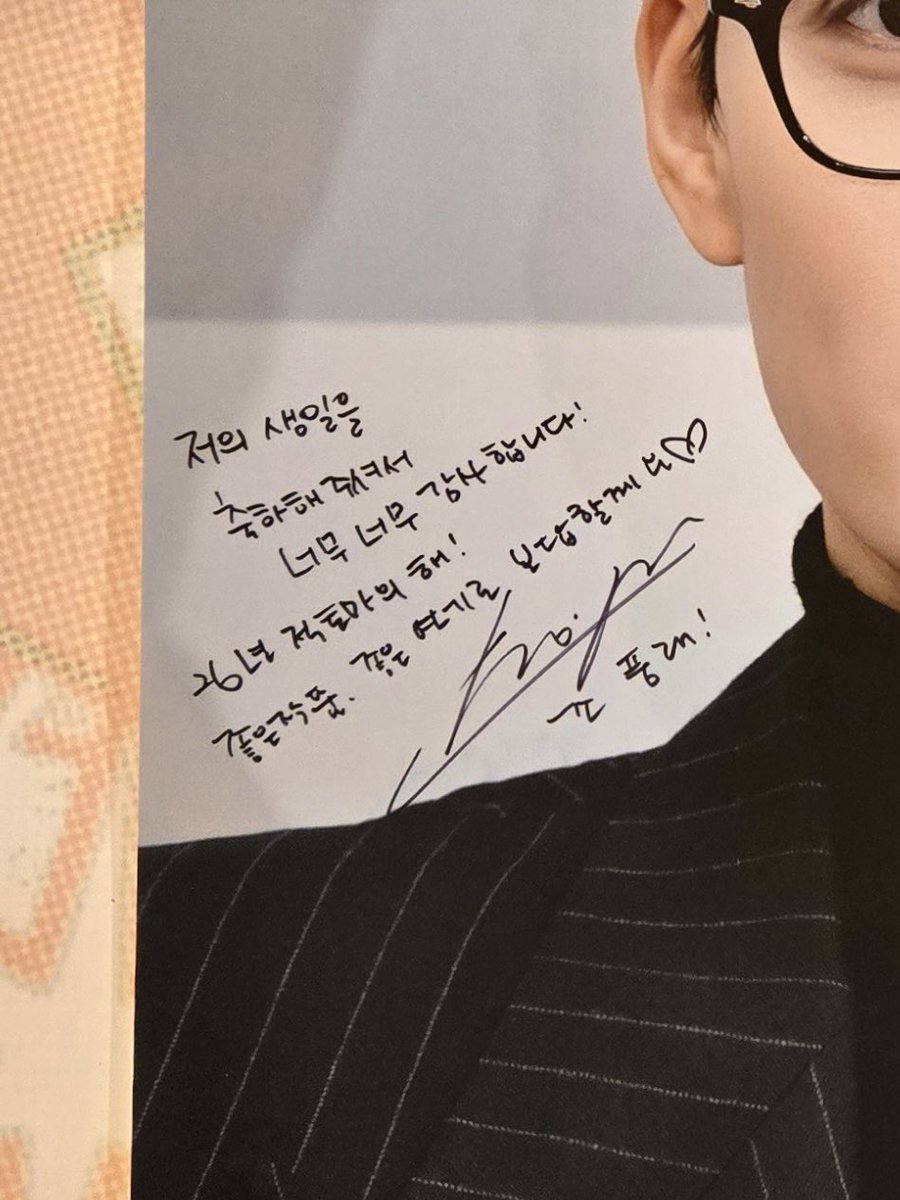 저의 생일을
축하해 주셔서
너무 너무 감사합니다!
26년 적토마의 해!
좋은작품. 좋은 연기로 보답할게요♡
풍래!